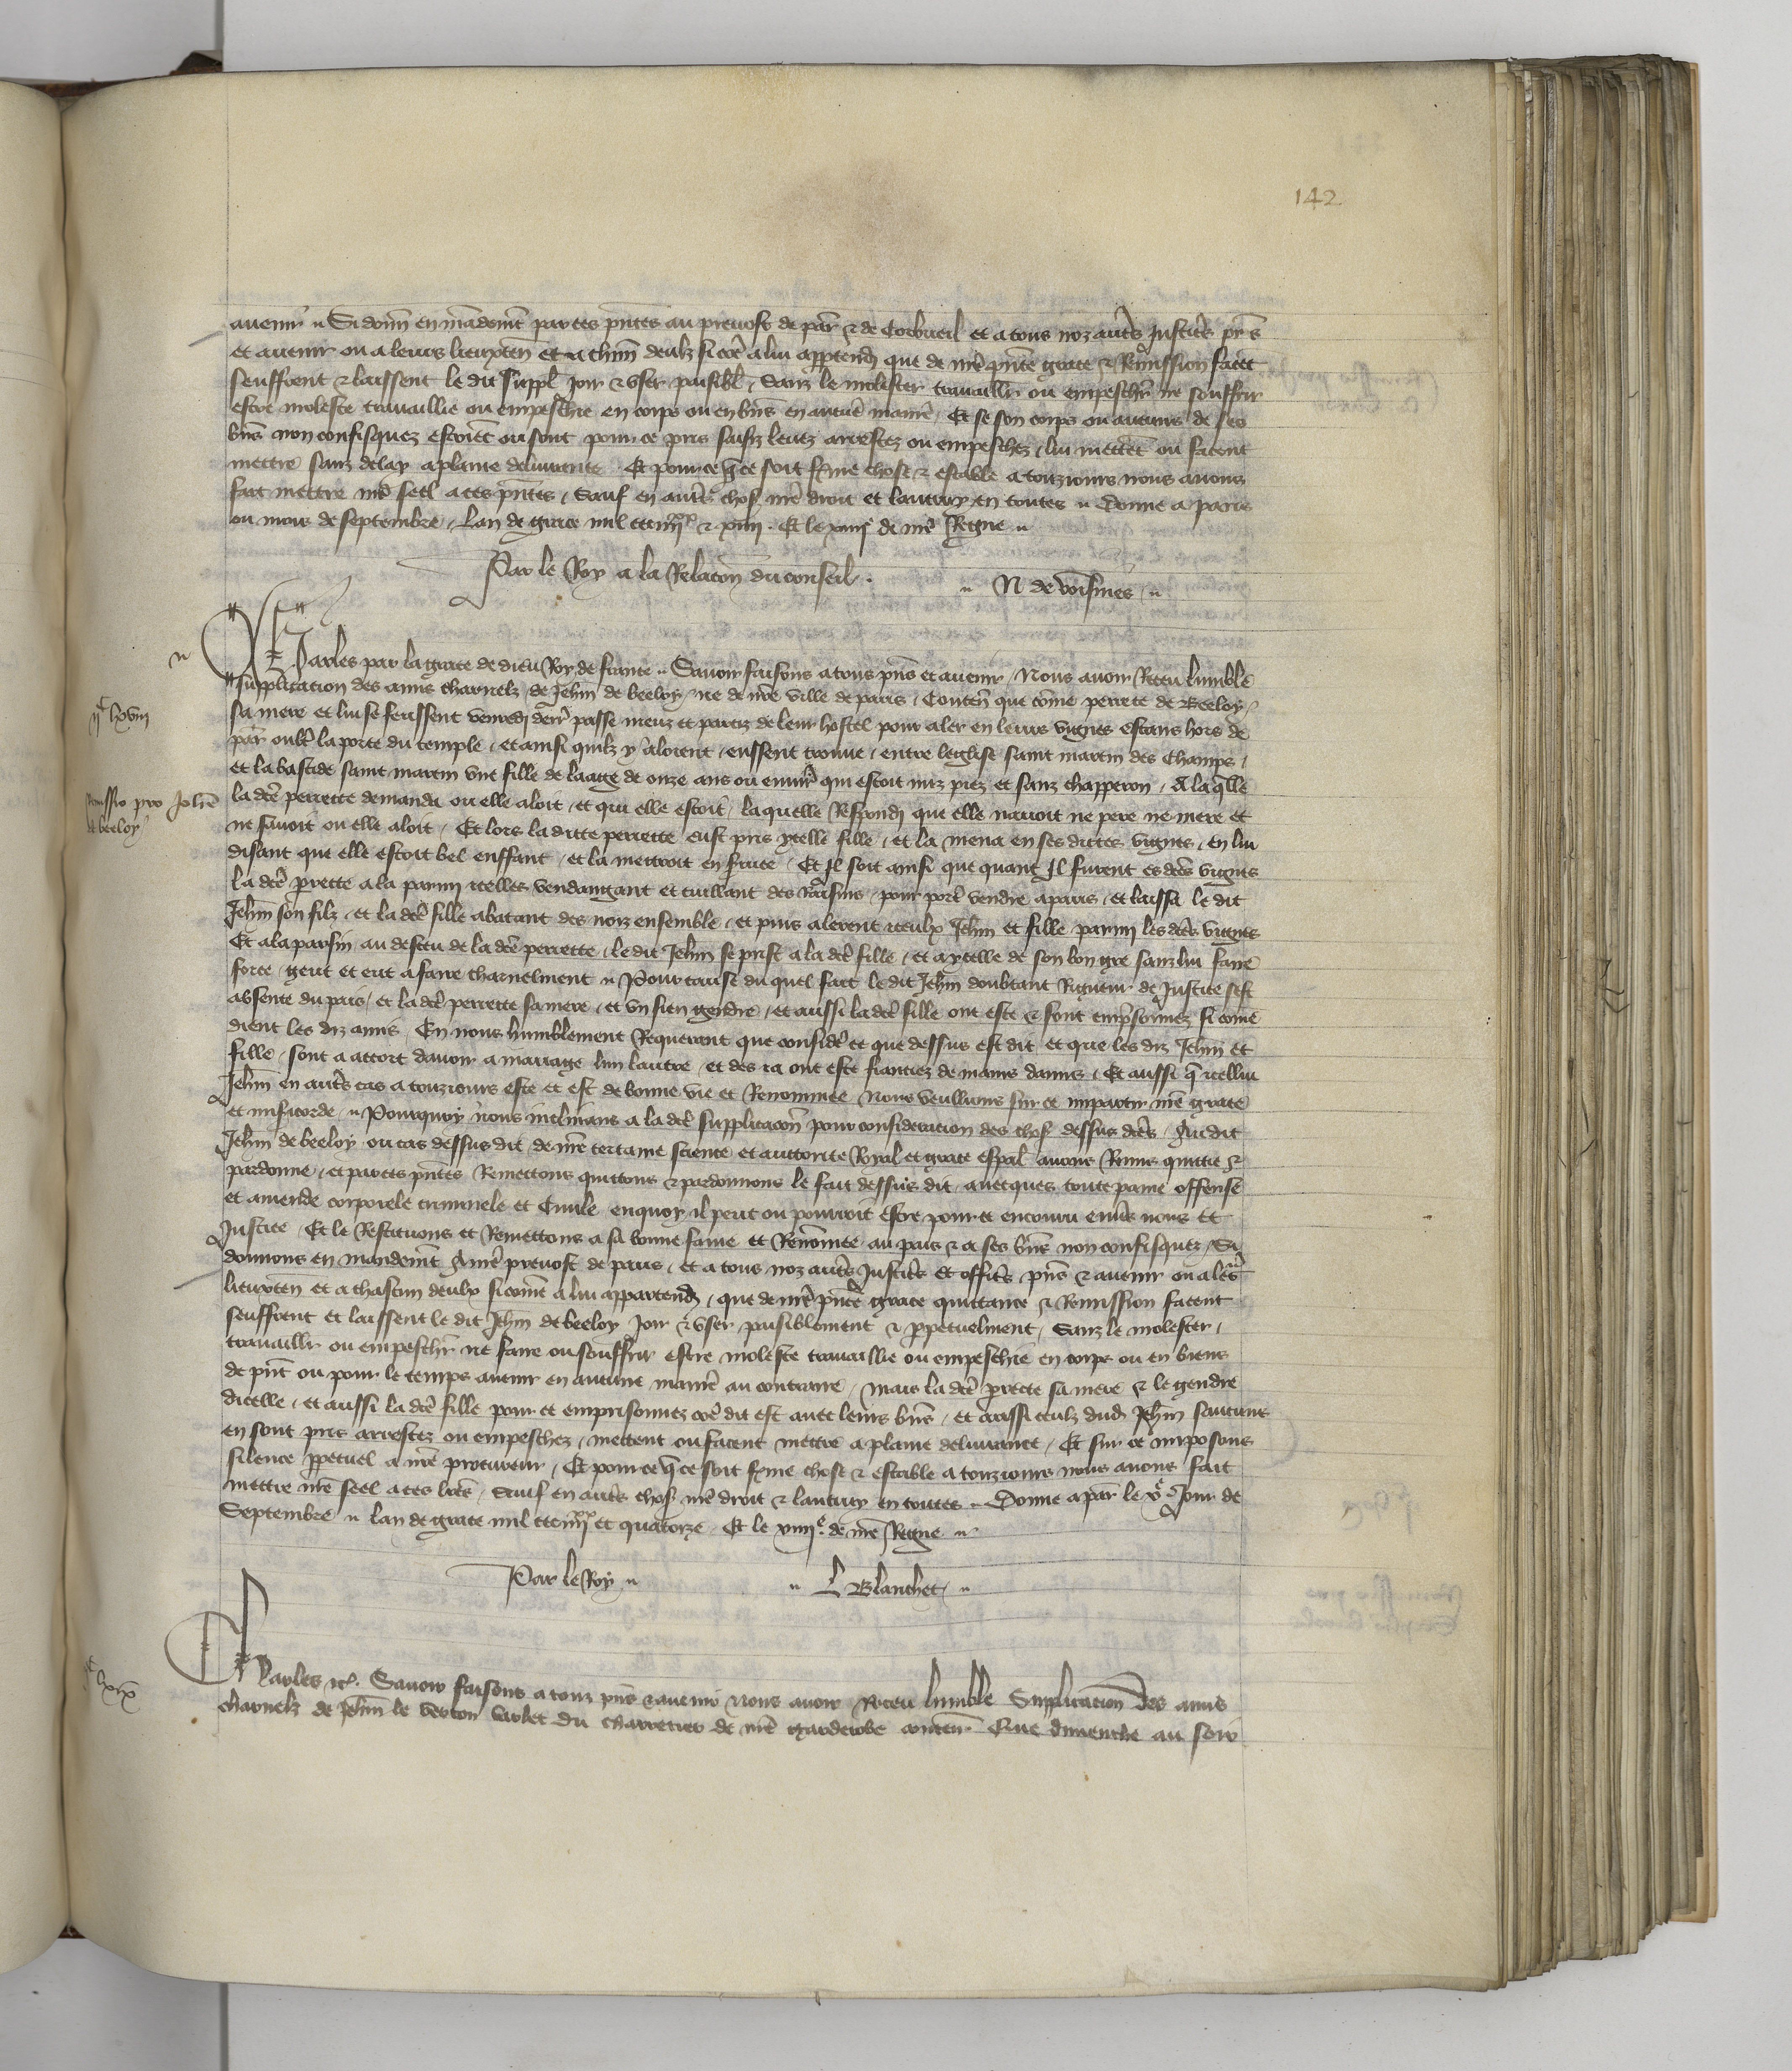 142
avenir Si donn en mandemt par ces pntes au prevost de par & de Corbueil et a tous noz autrs Justicrs prs
et avenir ou a leurs lieuxten et a chun deulz si coe a lui apptendr que de nre pnte grace & Remission facet
seuffrent & laissent le dit suppl joir & user paisibl, sanz le molester travaillr ou empeschr ne souffrir
estre moleste travaillie ou empeschie en corps ou en bns en aucue maniere, Et se son corps ou aucuns de ses
bns non confisquez estoiet ou sont pour ce pris saisiz levez arrestez ou empeschez, lui mettet ou facent
mettre sanz delay a plaine delivrance Et pour ce q ce soit ferme chose & estable a touziours nous avons
fait mettre nre seel a ces pntes, Sauf en autrs chos nre droit et lautruy en toutes Donne a paris
ou mois de septembre, Lan de grace mil ccc iiiixx & xiiii. Et le xiiiie de nre Regne
Par le Roy a la Relacon du conseil. N de voisines
Charles par la grace de dieu Roy de france Savoir faisons a tous pns et avenir, Nous avoir Receu lumble
IIc lxviii
supplication des amis charnelz de Jehan de beeloy ne de nre ville de paris, Conten que come perrete de Beeloy
sa mere et lui se feussent venredi denr passe meuz et partiz de leur hostel pour aler en leurs vignes estans hors de
par oultr la porte du temple, et ainsi quilz y aloient, eussent trouve, entre leglise saint martin des champs,
et la bastide saint martin une fille de laage de onze ans ou environ qui estoit nuz piez et sanz chapperon, A la qlle
Remissio pro Johe de beeloy
la dce perrette demanda ou elle aloit, et qui elle estoit, laquelle Respondi que elle navoit ne pere ne mere et
ne savoit ou elle aloit, Et lors la ditte perrette eust pris ycelle fille, et la mena en ses dictes vignes, en lui
disant que elle estoit bel enffant, et la mettroit en Et Il soit ainsi que quant Il furent es dces vignes
la dce prette a la parmi icelles vendangant et cuillant des Raisins, pour portr vendre a paris, et laissa le dit
Jehan son filz, et la dce fille abatant des noix ensemble, et puis alerent iceulx Jehan et fille parmi les dces vignes
Et a la parfin au desceu de la dce perrette, le dit Jehan se prist a la dce fille, et a ycelle de son bon gre sanz lui faire
force, geut et eut a faire charnelment Pour cause du quel fait le dit Jehan doubtant Rigueur de Justice sest
absente du pais, et la dce perrette sa mere, et un sien gendre, et aussi la dce fille ont este & sont emprisonnez si come
dient les diz amis, En nous humblement Requerant que considere ce que dessus est dit, et que les diz Jehan et
fille, sont a accort davoir a mariage lun lautre, et des ia ont este fianciez de mains damis, Et aussi q icellui
Jehan en autrs cas a touziours este et est de bonne vie et Renommee, Nous veuillions sur ce impartir nre grace
et misicorde Pourquoy nous inclinans a la dce supplicacon pour consideration des chos dessus dces, Au dit
Jehan de beeloy ou cas dessus dit de nre certaine science et auctorite Royal et grace espal avons Remis quitte &
pardonne, et par ces pntes Remettons quittons & pardonnons le fait dessus dit, avecques toute paine offense
et amende corporele criminele et Civile, en quoy il peut ou pourroit estre pour ce encouru envrs nous et
Justice Et le Restituons et Remettons a sa bonne fame et Renomee au pais & a ses bns non confisquez, Si
donnons en mandemt A nre prevost de paris, et a tous noz autrs Justicrs et officrs pns & avenir ou a leurs
lieuxten et a chascun deulx si come a lui appartendr, que de nre pnte grace quittance & Remission facent
seuffrent et laissent le dit Jehan de beeloy Joir & user paisiblement & ppetuelment, Sanz le molester,
travaillr ou empeschr ne faire ou souffrir estre moleste travaillie ou empeschie en corps ou en biens
de pnt ou pour le temps avenir en aucune manire au contraire, mais la dce prette sa mere & le gendre
dicelle, et aussi la dce fille pour ce emprisonnez coe dit est avec leurs bns, et aussi ceulz dud Jehan saucuns
en sont pris arrestez ou empeschez, mettent ou facent mettre a plaine delivrance, Et sur ce imposons
silence ppetuel a nre procureur, Et pour ce q ce soit ferme chose & estable a touziours nous avons fait
mettre nre seel a ces lres, Sauf en autrs chos nre droit & lautruy en toutes Donne a par le xe Jour de
Septembre lan de grace mil ccc iiiixx et quatorze Et le xiiiie de nre Regne
Par le Roy L Blanchet
IIc lxix
Charles etc. Savoir faisons a touz pns & avenir nous avoir receu lumble Supplication des amis
charnelz de Jehan le breton varlet du charretier de nre garderobe conten Que dimenche au soir